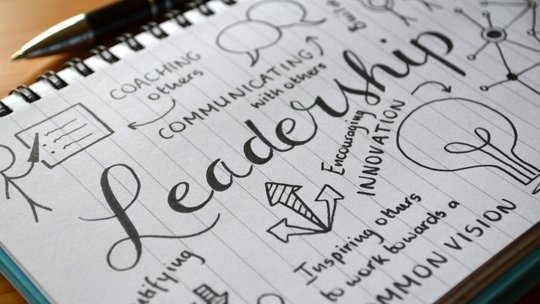 COACHING
others
COMMUNICATING
with others
Build
Leadership
Encouraging
INNOVATION
Inspiring others
to work towards a
OMMON VISION
ntifying